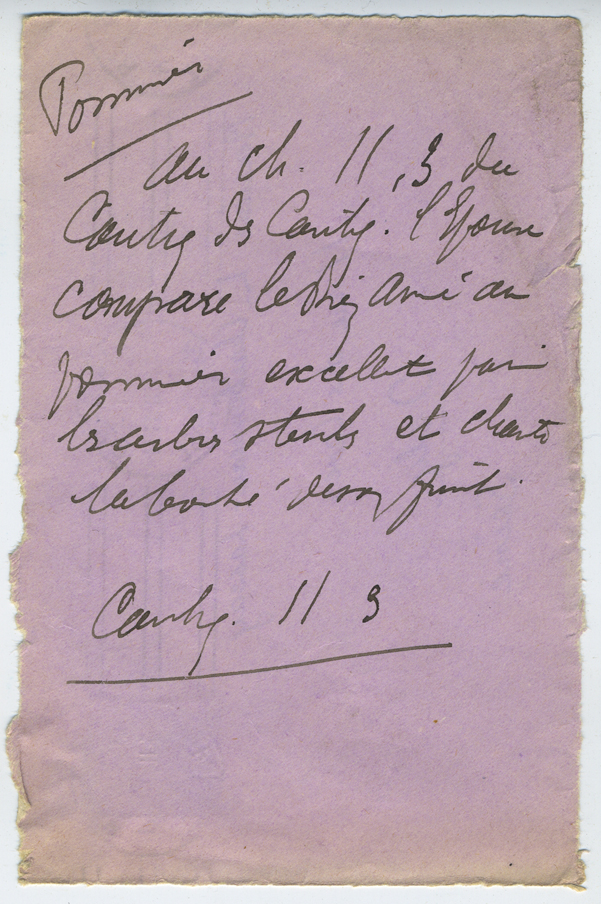 Pommier
Au ch. II, 3 du
Cantiq des Cantiq. l'Epouse
compare le Bien Aimé au
pommier excellent parmi
les arbres stériles et chante
la bonté de son fruit.
Cantiq. II 3